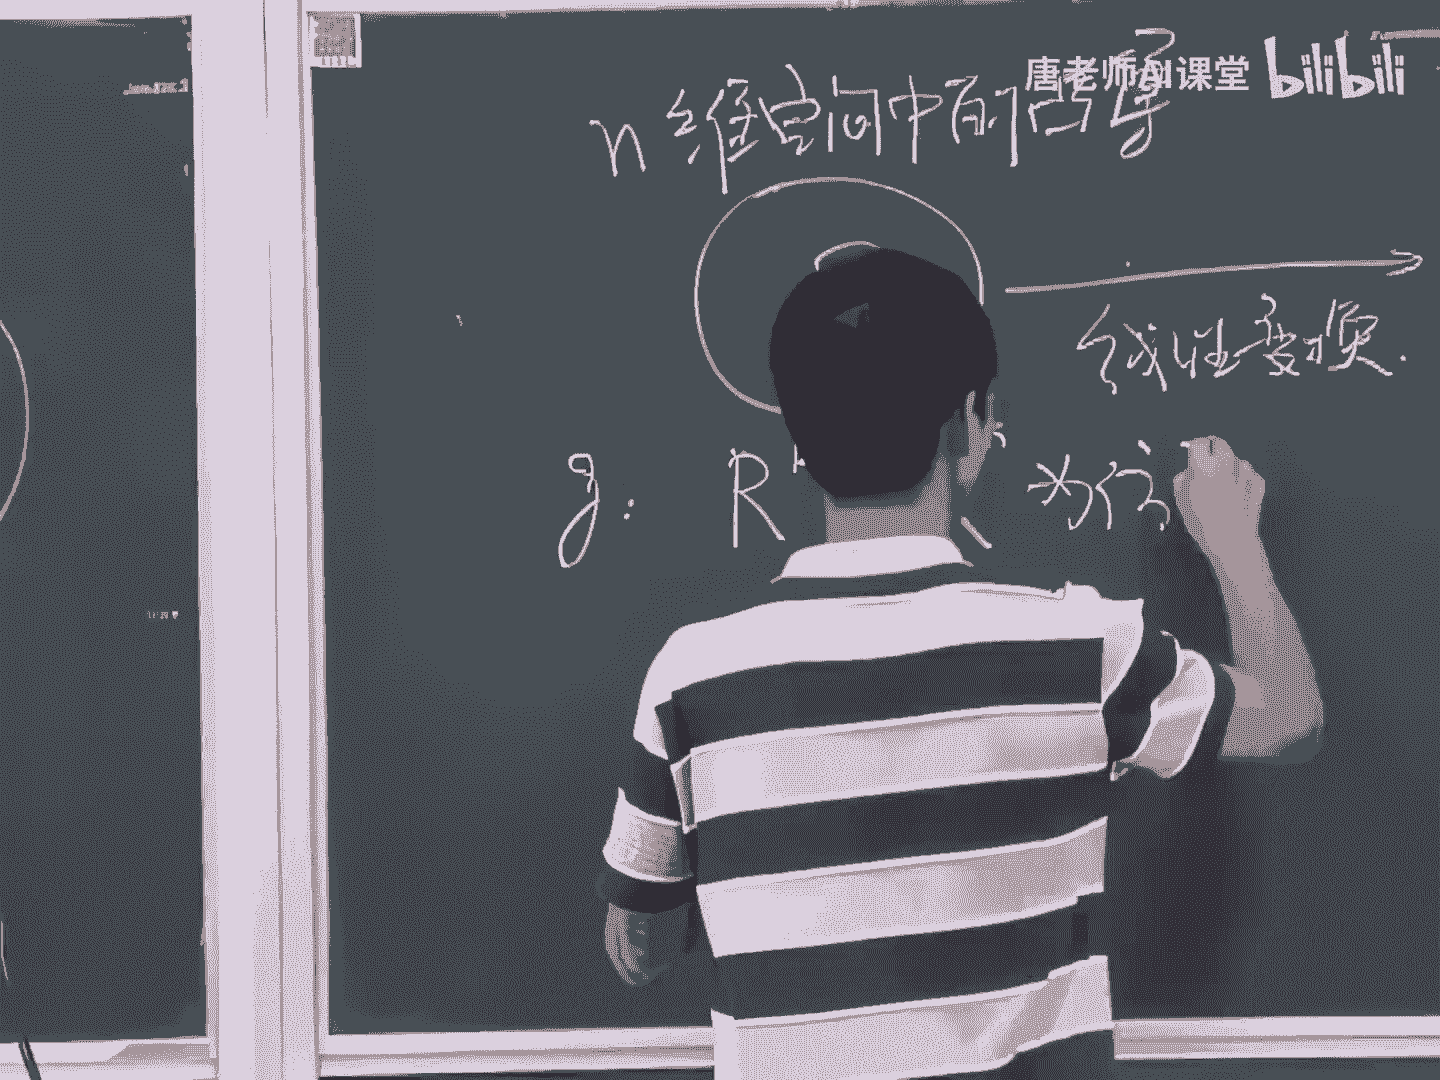 唐老师AI课堂 bilibili
n维空间中的凸集
线性变换.
g: R
为仿